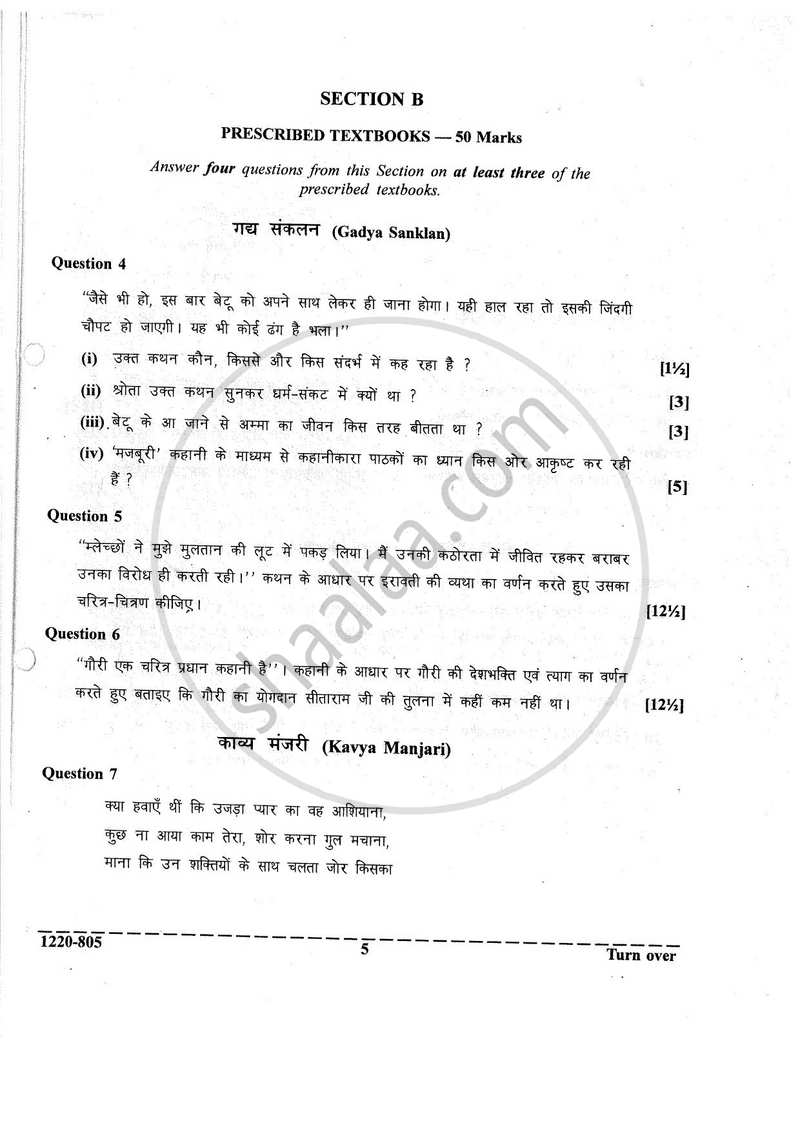 SECTION B
PRESCRIBED TEXTBOOKS — 50 Marks
Answer four questions from this Section on at least three of the
prescribed textbooks.
गद्य संकलन (Gadya Sanklan)
Question 4
“जैसे भी हो, इस बार बेटू को अपने साथ लेकर ही जाना होगा। यही हाल रहा तो इसकी जिंदगी
चौपट हो जाएगी। यह भी कोई ढंग है भला।”
(i) उक्त कथन कौन, किससे और किस संदर्भ में कह रहा है ? [1½]
(ii) श्रोता उक्त कथन सुनकर धर्म-संकट में क्यों था ? [3]
(iii) बेटू के आ जाने से अम्मा का जीवन किस तरह बीतता था ? [3]
(iv) ‘मजबूरी’ कहानी के माध्यम से कहानीकारा पाठकों का ध्यान किस ओर आकृष्ट कर रही
हैं ? [5]
Question 5
“म्लेच्छों ने मुझे मुलतान की लूट में पकड़ लिया। मैं उनकी कठोरता में जीवित रहकर बराबर
उनका विरोध ही करती रही।” कथन के आधार पर इरावती की व्यथा का वर्णन करते हुए उसका
चरित्र-चित्रण कीजिए। [12½]
Question 6
“गौरी एक चरित्र प्रधान कहानी है”। कहानी के आधार पर गौरी की देशभक्ति एवं त्याग का वर्णन
करते हुए बताइए कि गौरी का योगदान सीताराम जी की तुलना में कहीं कम नहीं था। [12½]
काव्य मंजरी (Kavya Manjari)
Question 7
क्या हवाएँ थीं कि उजड़ा प्यार का वह आशियाना,
कुछ ना आया काम तेरा, शोर करना गुल मचाना,
माना कि उन शक्तियों के साथ चलता जोर किसका
1220-805
5
Turn over
shaalaa.com